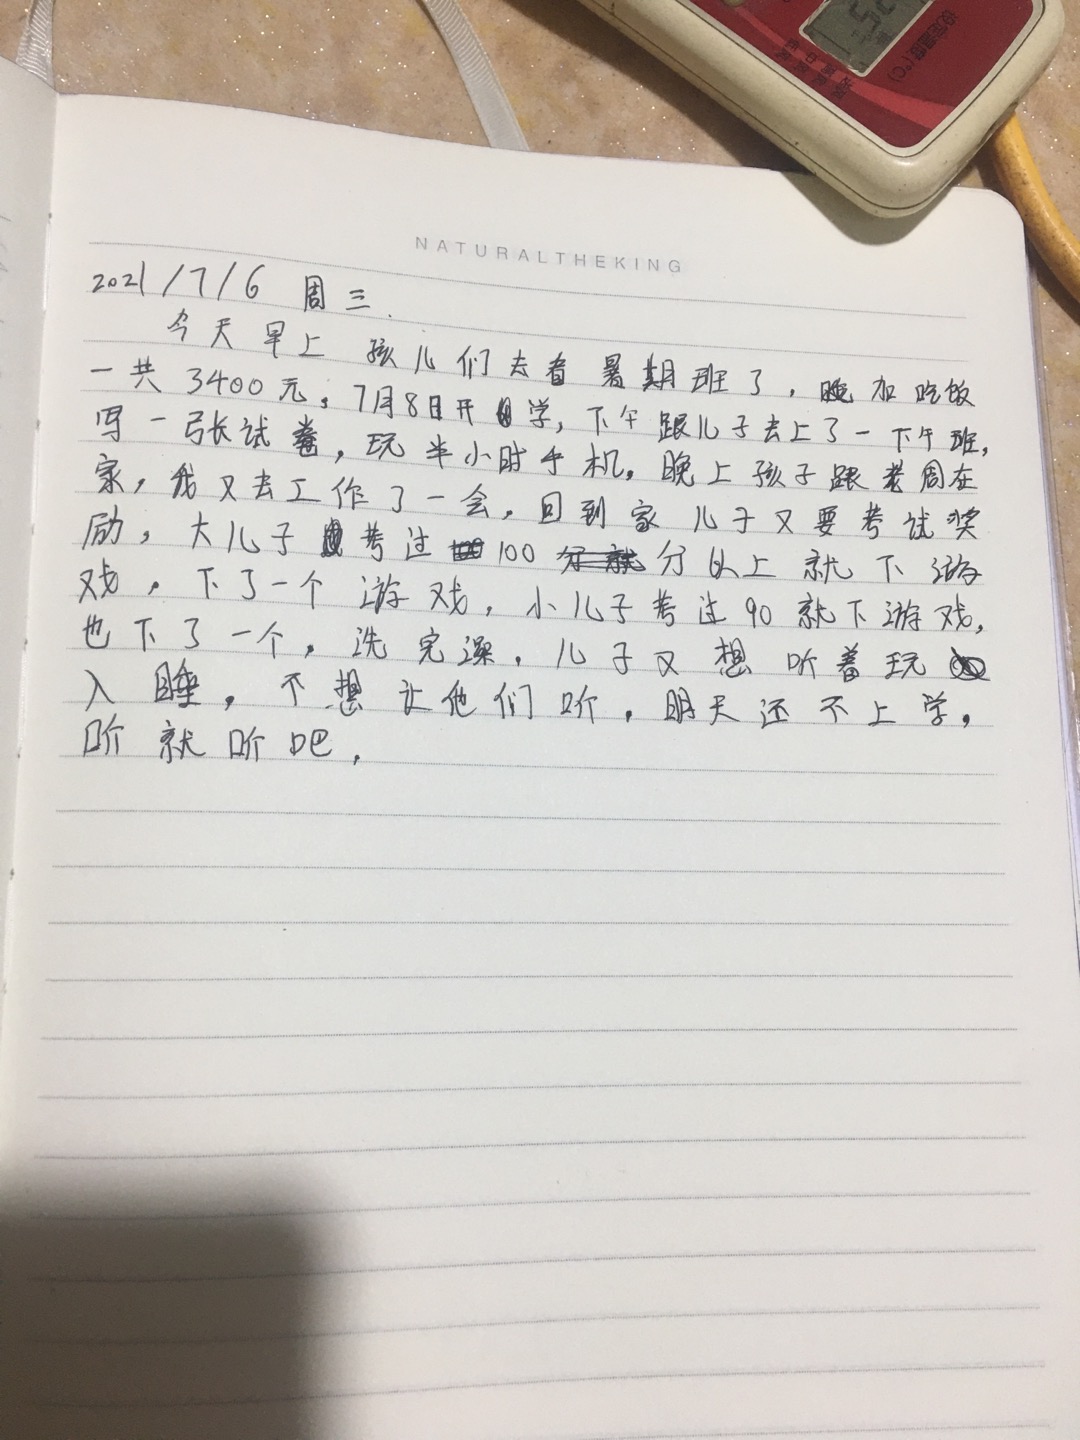 设定温度(℃)
NATURALTHEKING
2021/7/6 周三.
今天早上孩儿们去看暑期班了,晚加吃饭
一共3400元。7月8日开学,下午跟儿子去上了一下午班,
写一张试卷,玩半小时手机。晚上孩子跟老周在
家,我又去工作了一会,回到家儿子又要考试奖
励,大儿子考过100分以上就下游
戏,下了一个游戏,小儿子考过90就下游戏,
也下了一个,洗完澡,儿子又想听着玩
入睡,不想让他们听,明天还不上学,
听就听吧,